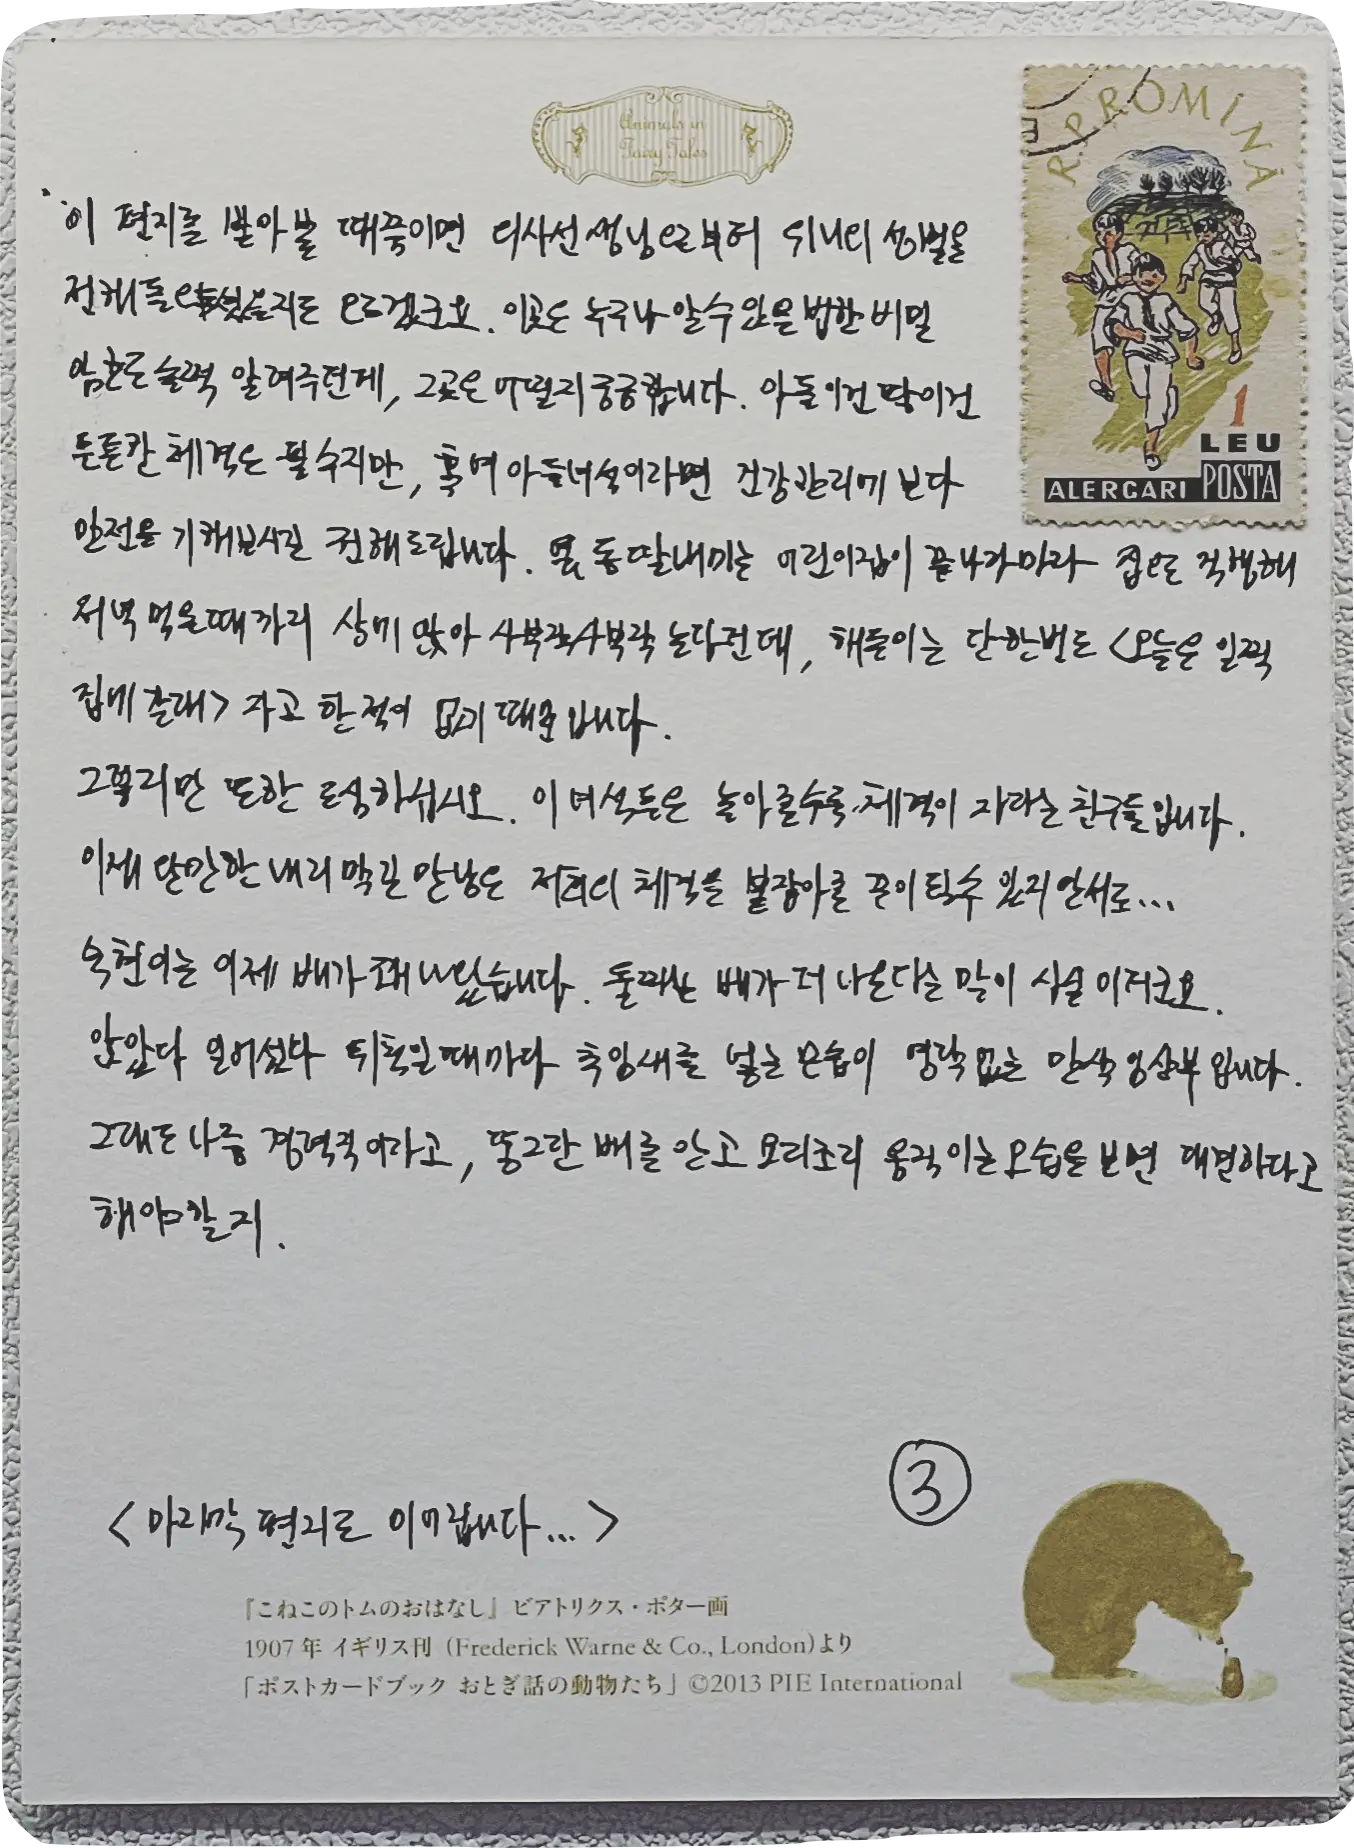 Animals in
Fairy Tales
R.P.ROMINA
1
LEU
ALERGARI POSTA
이 편지를 받아볼 때쯤이면 의사선생님으로부터 뒤니의 성별을
전해들으셨을지도 모르겠군요. 이곳은 누구나 알 수 있을 법한 비밀
암호로 슬쩍 알려주던데, 그곳은 어떨지 궁금합니다. 아들이건 딸이건
튼튼한 체격은 필수지만, 혹여 아들녀석이라면 건강관리에 보다
만전을 기해보시길 권해드립니다. 옆 동 딸내미는 어린이집이 끝나자마자 집으로 직행해
저녁 먹을때까지 상에 앉아 사부작사부작 논다던데, 해든이는 단 한번도 <오늘은 일찍
집에 갈래> 라고 한 적이 없기 때문입니다.
그렇지만 또한 조심하십시오. 이 녀석들은 놀아줄수록 체격이 자라는 친구들입니다.
이제 만만한 내리막길 만남은 저희의 체격을 붙잡아줄 끈이 될 수 있지 않서도...
숙현이는 이제 배가 꽤 나왔습니다. 둘째는 배가 더 나온다는 말이 사실이더군요.
앉았다 일어섰다 뒤척일 때마다 추임새를 넣는 모습이 영락없는 만삭 임산부입니다.
그래도 나름 경력직이라고, 똥그란 배를 안고 요리조리 움직이는 모습을 보면 대견하다고
해야할지.
③
<마지막 편지로 이어집니다...>
『こねこのトムのおはなし』 ビアトリクス・ポター画
1907年 イギリス刊 (Frederick Warne & Co., London)より
「ポストカードブック おとぎ話の動物たち」 ©2013 PIE International